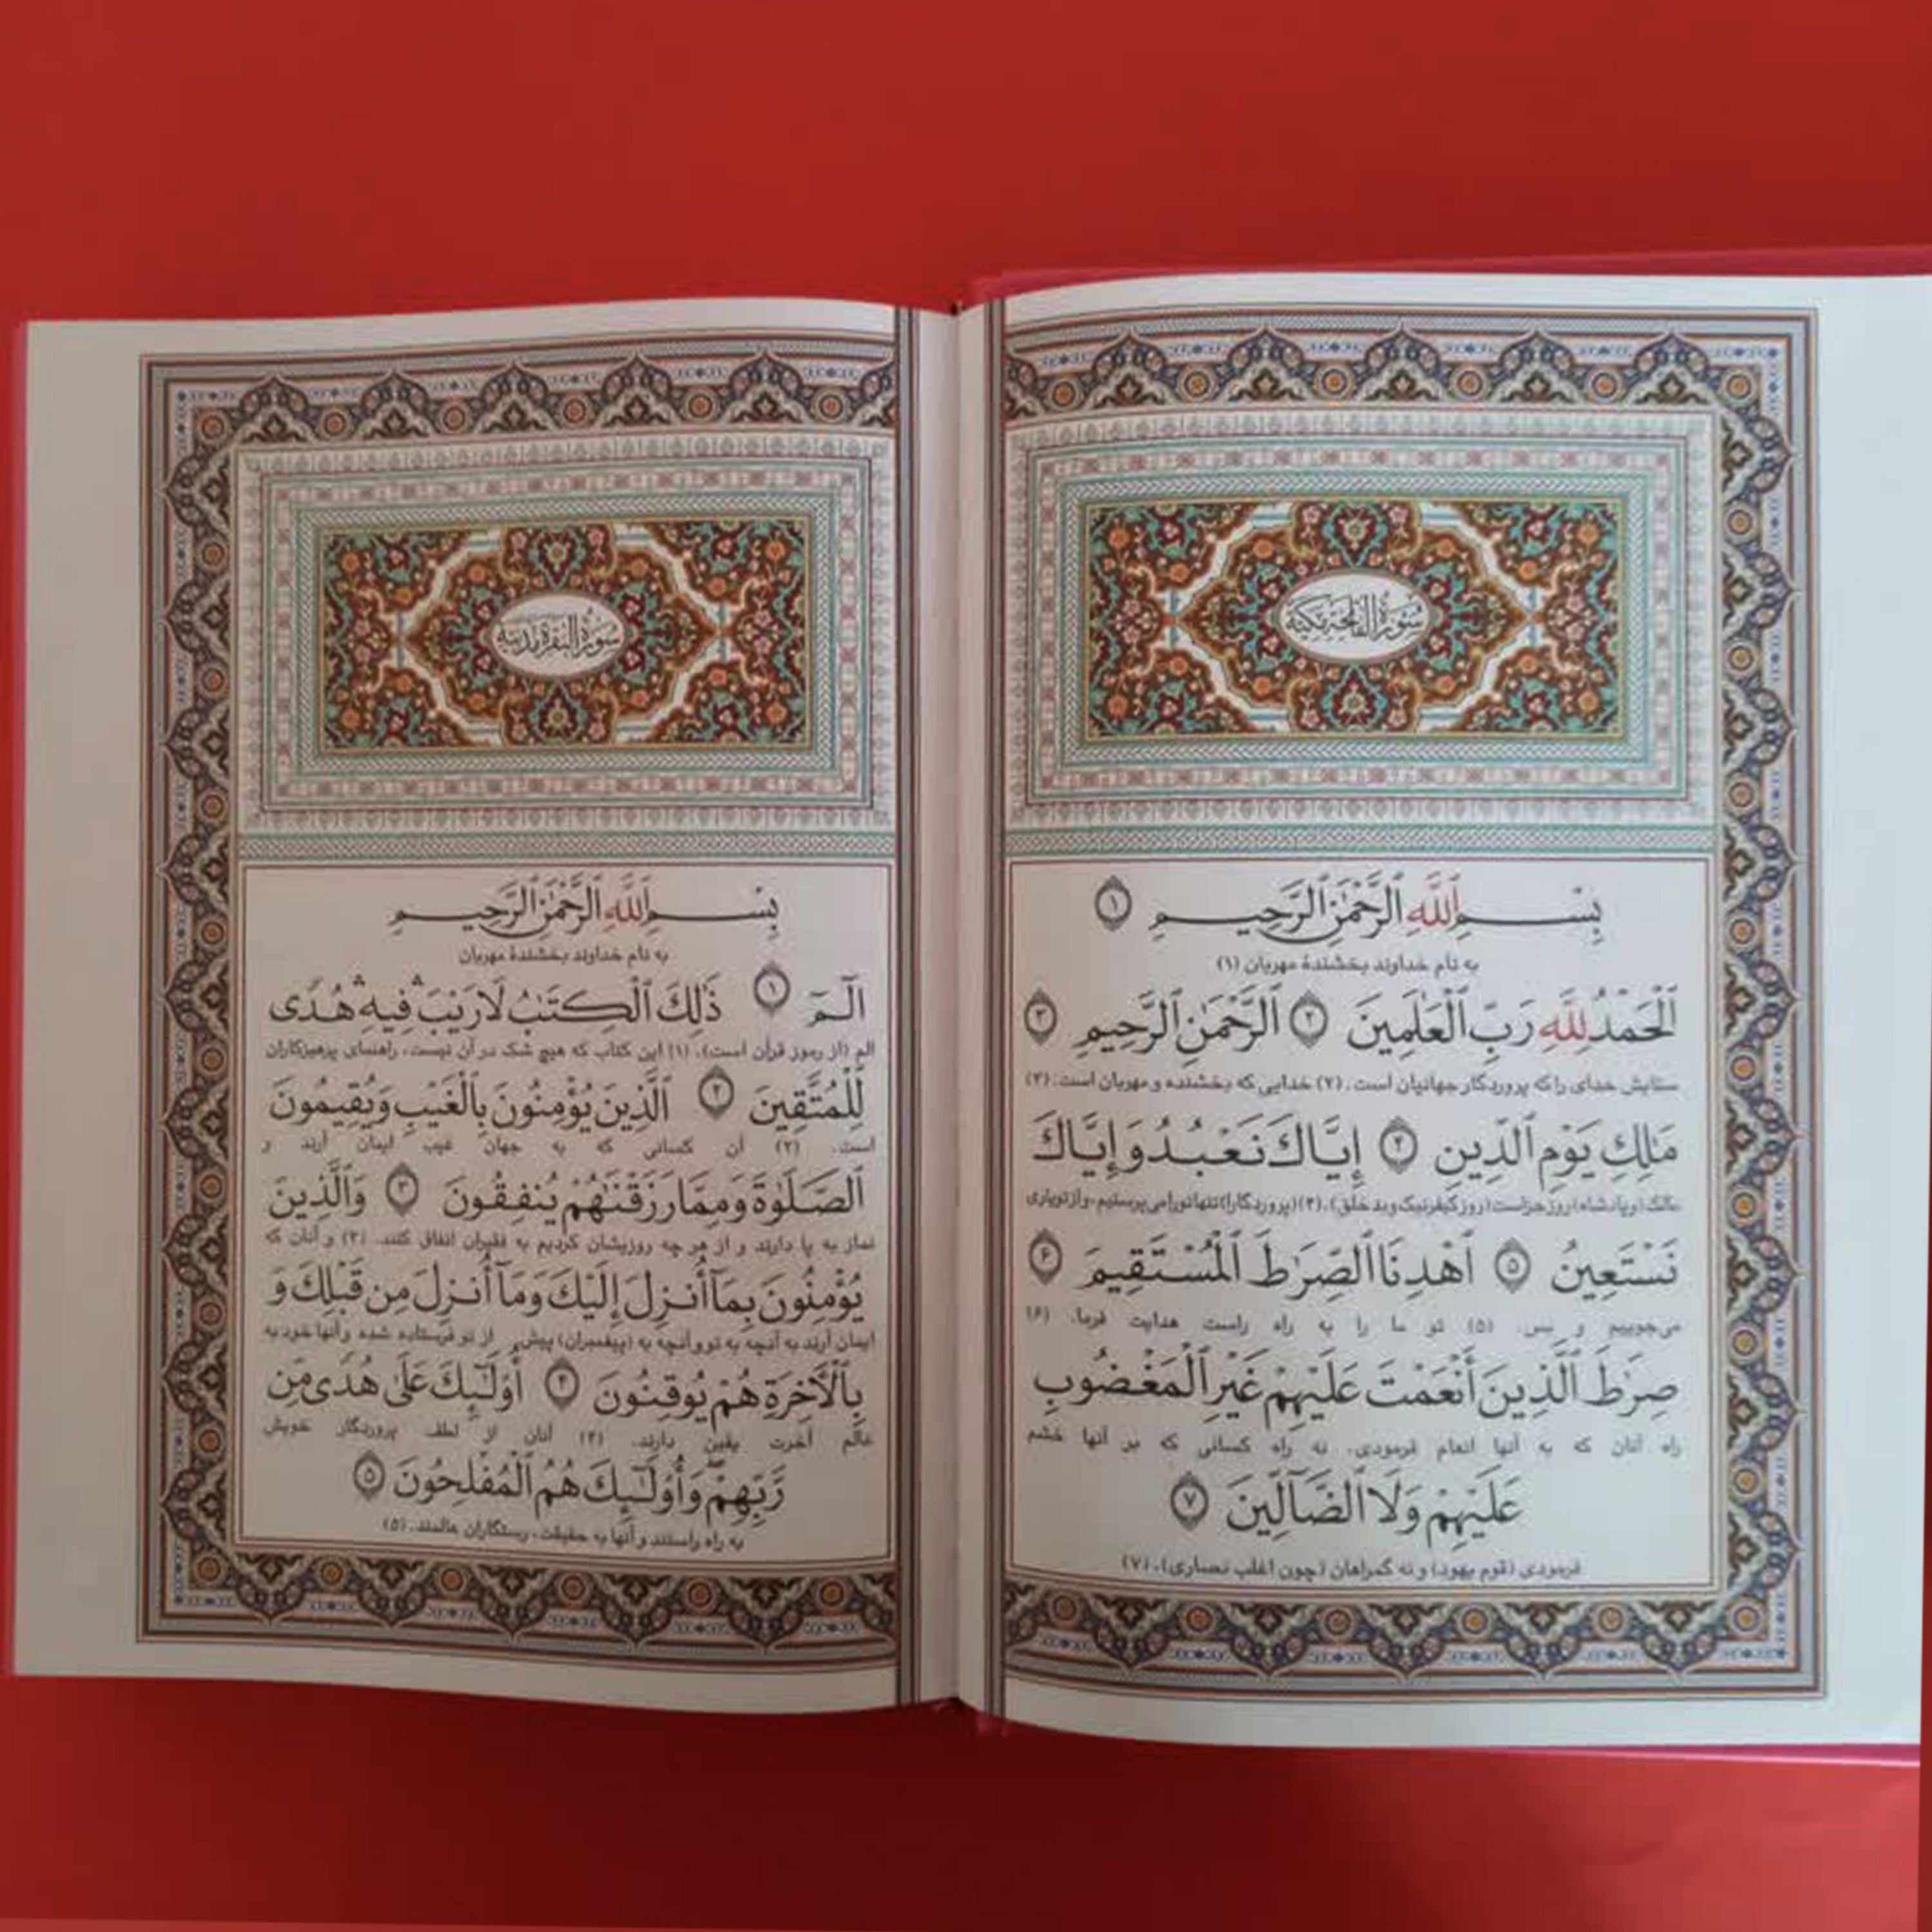 سُورَةُ الفَاتِحَة مَكِّيَّة
بِسْمِ ٱللَّهِ ٱلرَّحْمَٰنِ ٱلرَّحِيمِ ١
به نام خداوند بخشندهٔ مهربان (۱)
ٱلْحَمْدُ لِلَّهِ رَبِّ ٱلْعَٰلَمِينَ ٢ ٱلرَّحْمَٰنِ ٱلرَّحِيمِ ٣
ستایش خدای را که پروردگار جهانیان است. (۲) خدایی که بخشنده و مهربان است. (۳)
مَٰلِكِ يَوْمِ ٱلدِّينِ ۴ إِيَّاكَ نَعْبُدُ وَإِيَّاكَ
مالک (و پادشاه) روز جزاست (روز کیفر نیک و بد خلق). (۴) (پروردگارا) تنها تو را می‌پرستیم، و از تو یاری
نَسْتَعِينُ ۵ ٱهْدِنَا ٱلصِّرَٰطَ ٱلْمُسْتَقِيمَ ۶
می‌جوییم و بس. (۵) تو ما را به راه راست هدایت فرما. (۶)
صِرَٰطَ ٱلَّذِينَ أَنْعَمْتَ عَلَيْهِمْ غَيْرِ ٱلْمَغْضُوبِ
راه آنان که به آنها انعام فرمودی، نه راه کسانی که بر آنها خشم
عَلَيْهِمْ وَلَا ٱلضَّآلِّينَ ٧
فرمودی (قوم یهود) و نه گمراهان (چون اغلب نصاری). (۷)
سُورَةُ البَقَرَة مَدَنِيَّة
بِسْمِ ٱللَّهِ ٱلرَّحْمَٰنِ ٱلرَّحِيمِ
به نام خداوند بخشندهٔ مهربان
الٓمٓ ١ ذَٰلِكَ ٱلْكِتَٰبُ لَا رَيْبَ ۛ فِيهِ ۛ هُدًى
الم (از رموز قرآن است). (۱) این کتاب که هیچ شک در آن نیست، راهنمای پرهیزکاران
لِّلْمُتَّقِينَ ٢ ٱلَّذِينَ يُؤْمِنُونَ بِٱلْغَيْبِ وَيُقِيمُونَ
است. (۲) آن کسانی که به جهان غیب ایمان آرند و
ٱلصَّلَوٰةَ وَمِمَّا رَزَقْنَٰهُمْ يُنفِقُونَ ٣ وَٱلَّذِينَ
نماز به پا دارند و از هر چه روزیشان کردیم به فقیران انفاق کنند. (۳) و آنان که
يُؤْمِنُونَ بِمَآ أُنزِلَ إِلَيْكَ وَمَآ أُنزِلَ مِن قَبْلِكَ وَ
ایمان آرند به آنچه به تو و آنچه به (پیغمبران) پیش از تو فرستاده شده و آنها خود به
بِٱلْأٓخِرَةِ هُمْ يُوقِنُونَ ۴ أُو۟لَٰٓئِكَ عَلَىٰ هُدًى مِّن
عالم آخرت یقین دارند. (۴) آنان از لطف پروردگار خویش
رَّبِّهِمْ ۖ وَأُو۟لَٰٓئِكَ هُمُ ٱلْمُفْلِحُونَ ۵
به راه راستند و آنها به حقیقت، رستگاران عالمند. (۵)